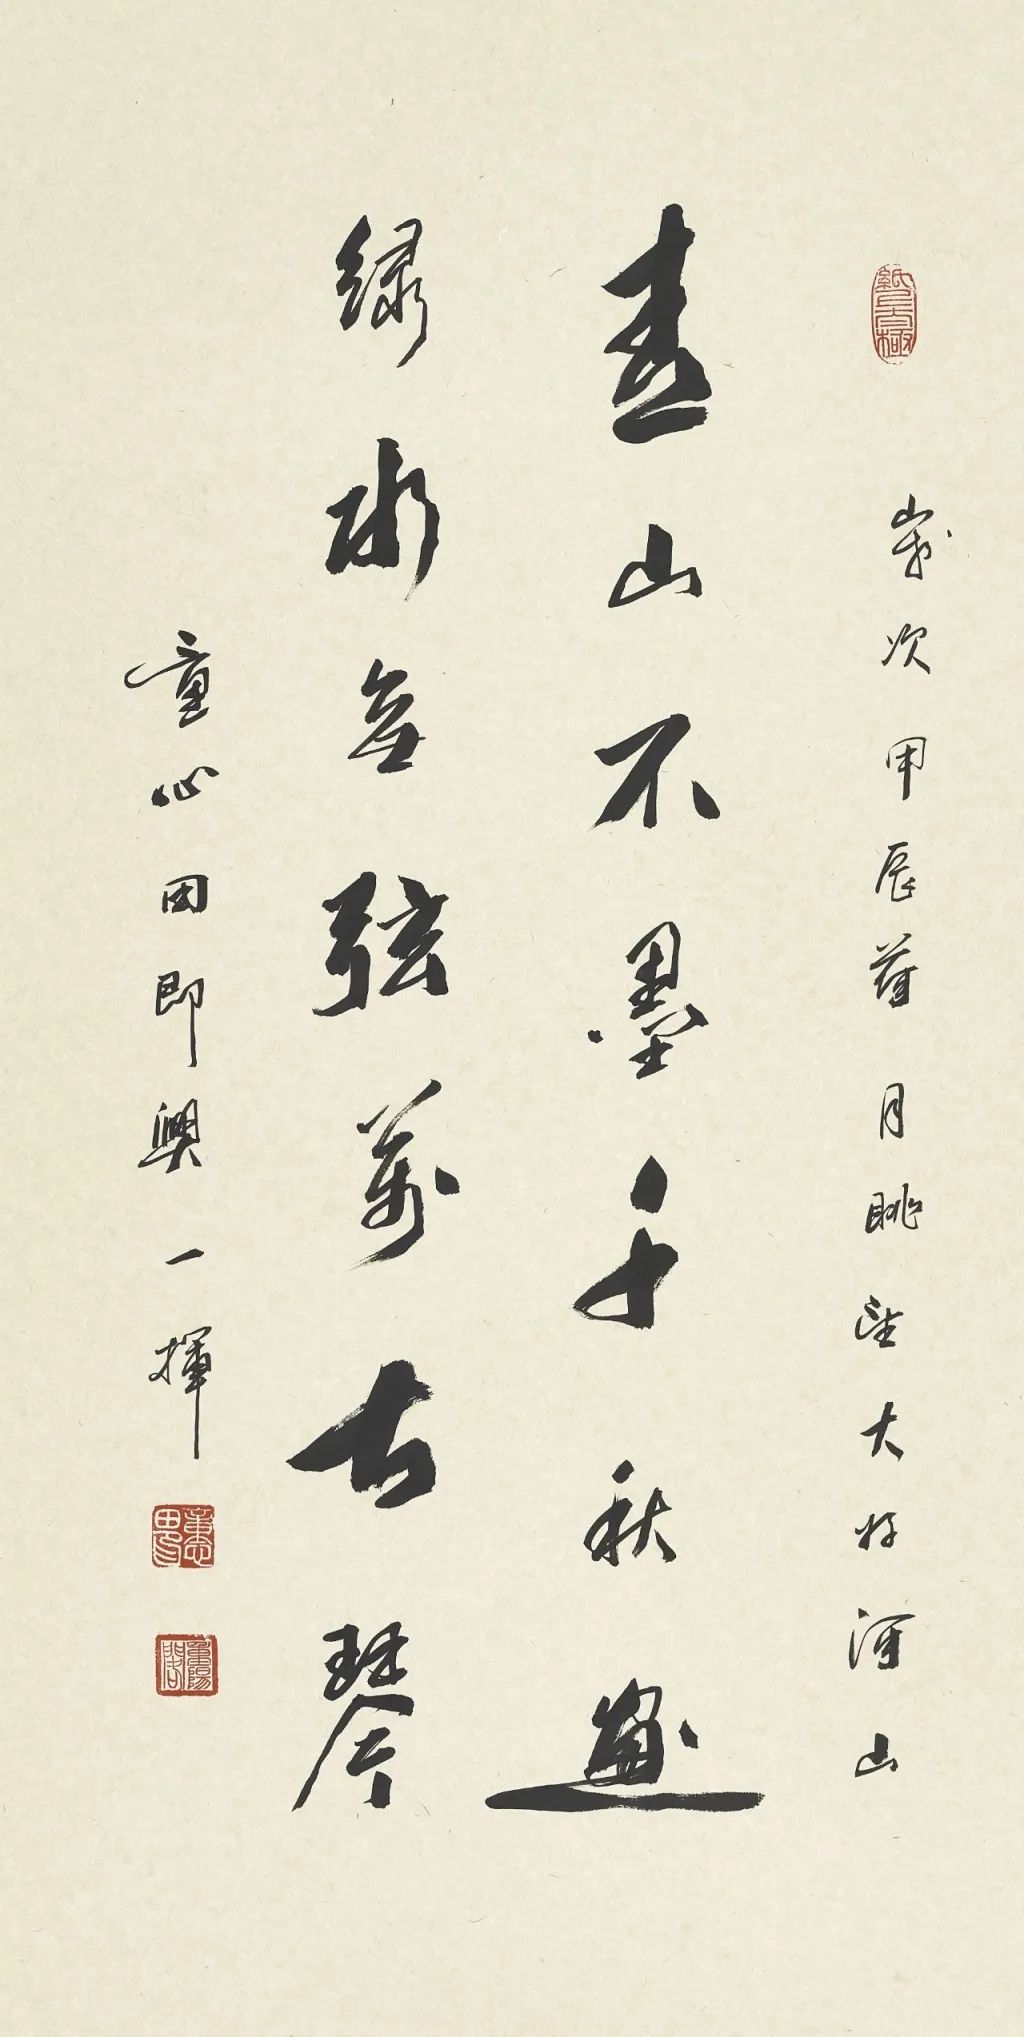 歲次甲辰月眺望大好河山
青山不墨千秋畫
綠水無弦萬古琴
童心田即興一揮